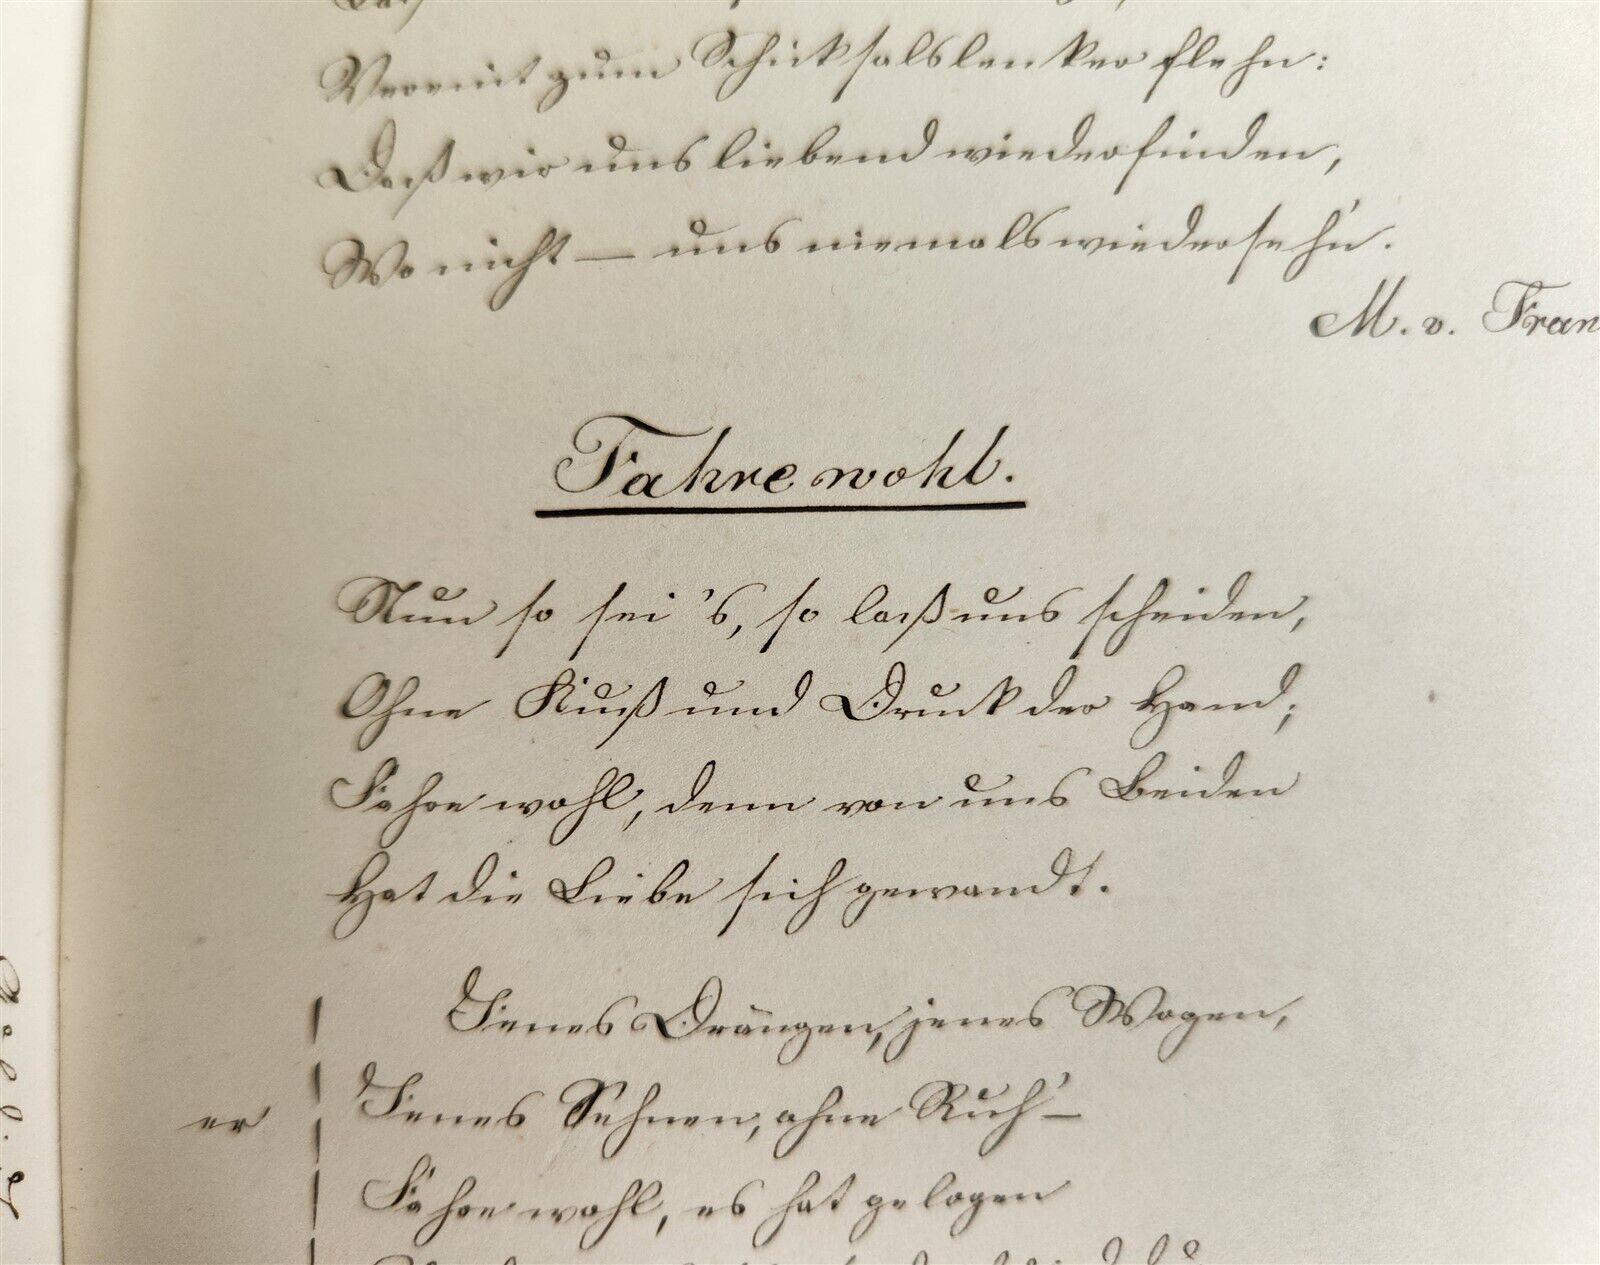 Vereint zum Schicksalslenker flehn:
Daß wir uns liebend wiederfinden,
Wo nicht — uns niemals wiedersehn'.
M. v. Fran
Fahre wohl.
Nun so sei's, so laß uns scheiden,
Ohne Kuß und Druck der Hand;
Fahre wohl, denn von uns Beiden
Hat die Liebe sich gewandt.
Jenes Drängen, jenes Wogen,
er Jenes Sehnen, ohne Ruh' —
Fahre wohl, es hat gelogen